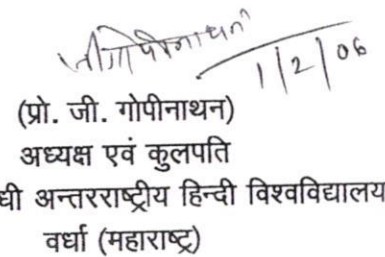 जी गोपीनाथन
1/2/06
(प्रो. जी. गोपीनाथन)
अध्यक्ष एवं कुलपति
धी अन्तरराष्ट्रीय हिन्दी विश्वविद्यालय
वर्धा (महाराष्ट्र)